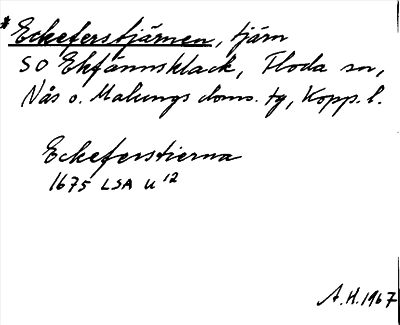 *Eckeferstjärnen, tjärn
SO Ekfännsklack, Floda sn,
Nås o. Malungs doms. tg, Kopp. l.
Eckeferstierna
1675 LSA U 12
A.H. 1967